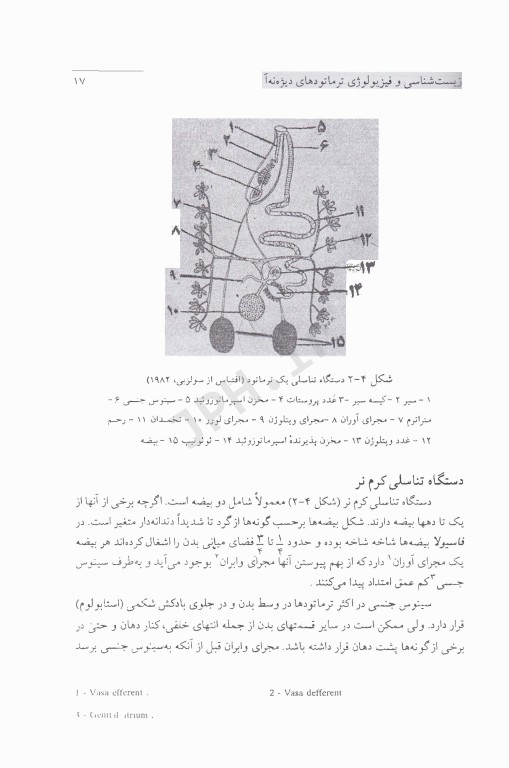 زیست‌شناسی و فیزیولوژی ترماتودهای دیژه‌نه‌آ
۱۷
۱
۲
۳
۴
۵
۶
۷
۸
۹
۱۰
۱۱
۱۲
۱۳
۱۴
۱۵
شکل ۴-۲ دستگاه تناسلی یک ترماتود (اقتباس از سولزبی، ۱۹۸۲)
۱ - سیر ۲ -کیسه سیر -۳ غدد پروستات ۴ - مخزن اسپرماتوزوئید ۵ - سینوس جنسی ۶ -
متراترم ۷ - مجرای آوران ۸ -مجرای ویتلوژن ۹ - مجرای لورر ۱۰ - تخمدان ۱۱ - رحم
۱۲ - غدد ویتلوژن ۱۳ - مخزن پذیرندهٔ اسپرماتوزوئید ۱۴ - ئوئوتیپ ۱۵ - بیضه
دستگاه تناسلی کرم نر
دستگاه تناسلی کرم نر (شکل ۴-۲) معمولاً شامل دو بیضه است. اگرچه برخی از آنها از
یک تا دهها بیضه دارند. شکل بیضه‌ها برحسب گونه‌ها از گرد تا شدیداً دندانه‌دار متغیر است. در
فاسیولا بیضه‌ها شاخه شاخه بوده و حدود ۱/۴ تا ۳/۴ فضای میانی بدن را اشغال کرده‌اند هر بیضه
یک مجرای آوران۱ دارد که از بهم پیوستن آنها مجرای وابران۲ بوجود می‌آید و به‌طرف سینوس
جنسی۳ کم عمق امتداد پیدا می‌کنند.
سینوس جنسی در اکثر ترماتودها در وسط بدن و در جلوی بادکش شکمی (استابولوم)
قرار دارد. ولی ممکن است در سایر قسمتهای بدن از جمله انتهای خلفی، کنار دهان و حتی در
برخی از گونه‌ها پشت دهان قرار داشته باشد. مجرای وابران قبل از آنکه به‌سینوس جنسی برسد
1 - Vasa efferent .
2 - Vasa defferent
3 - Genital atrium .